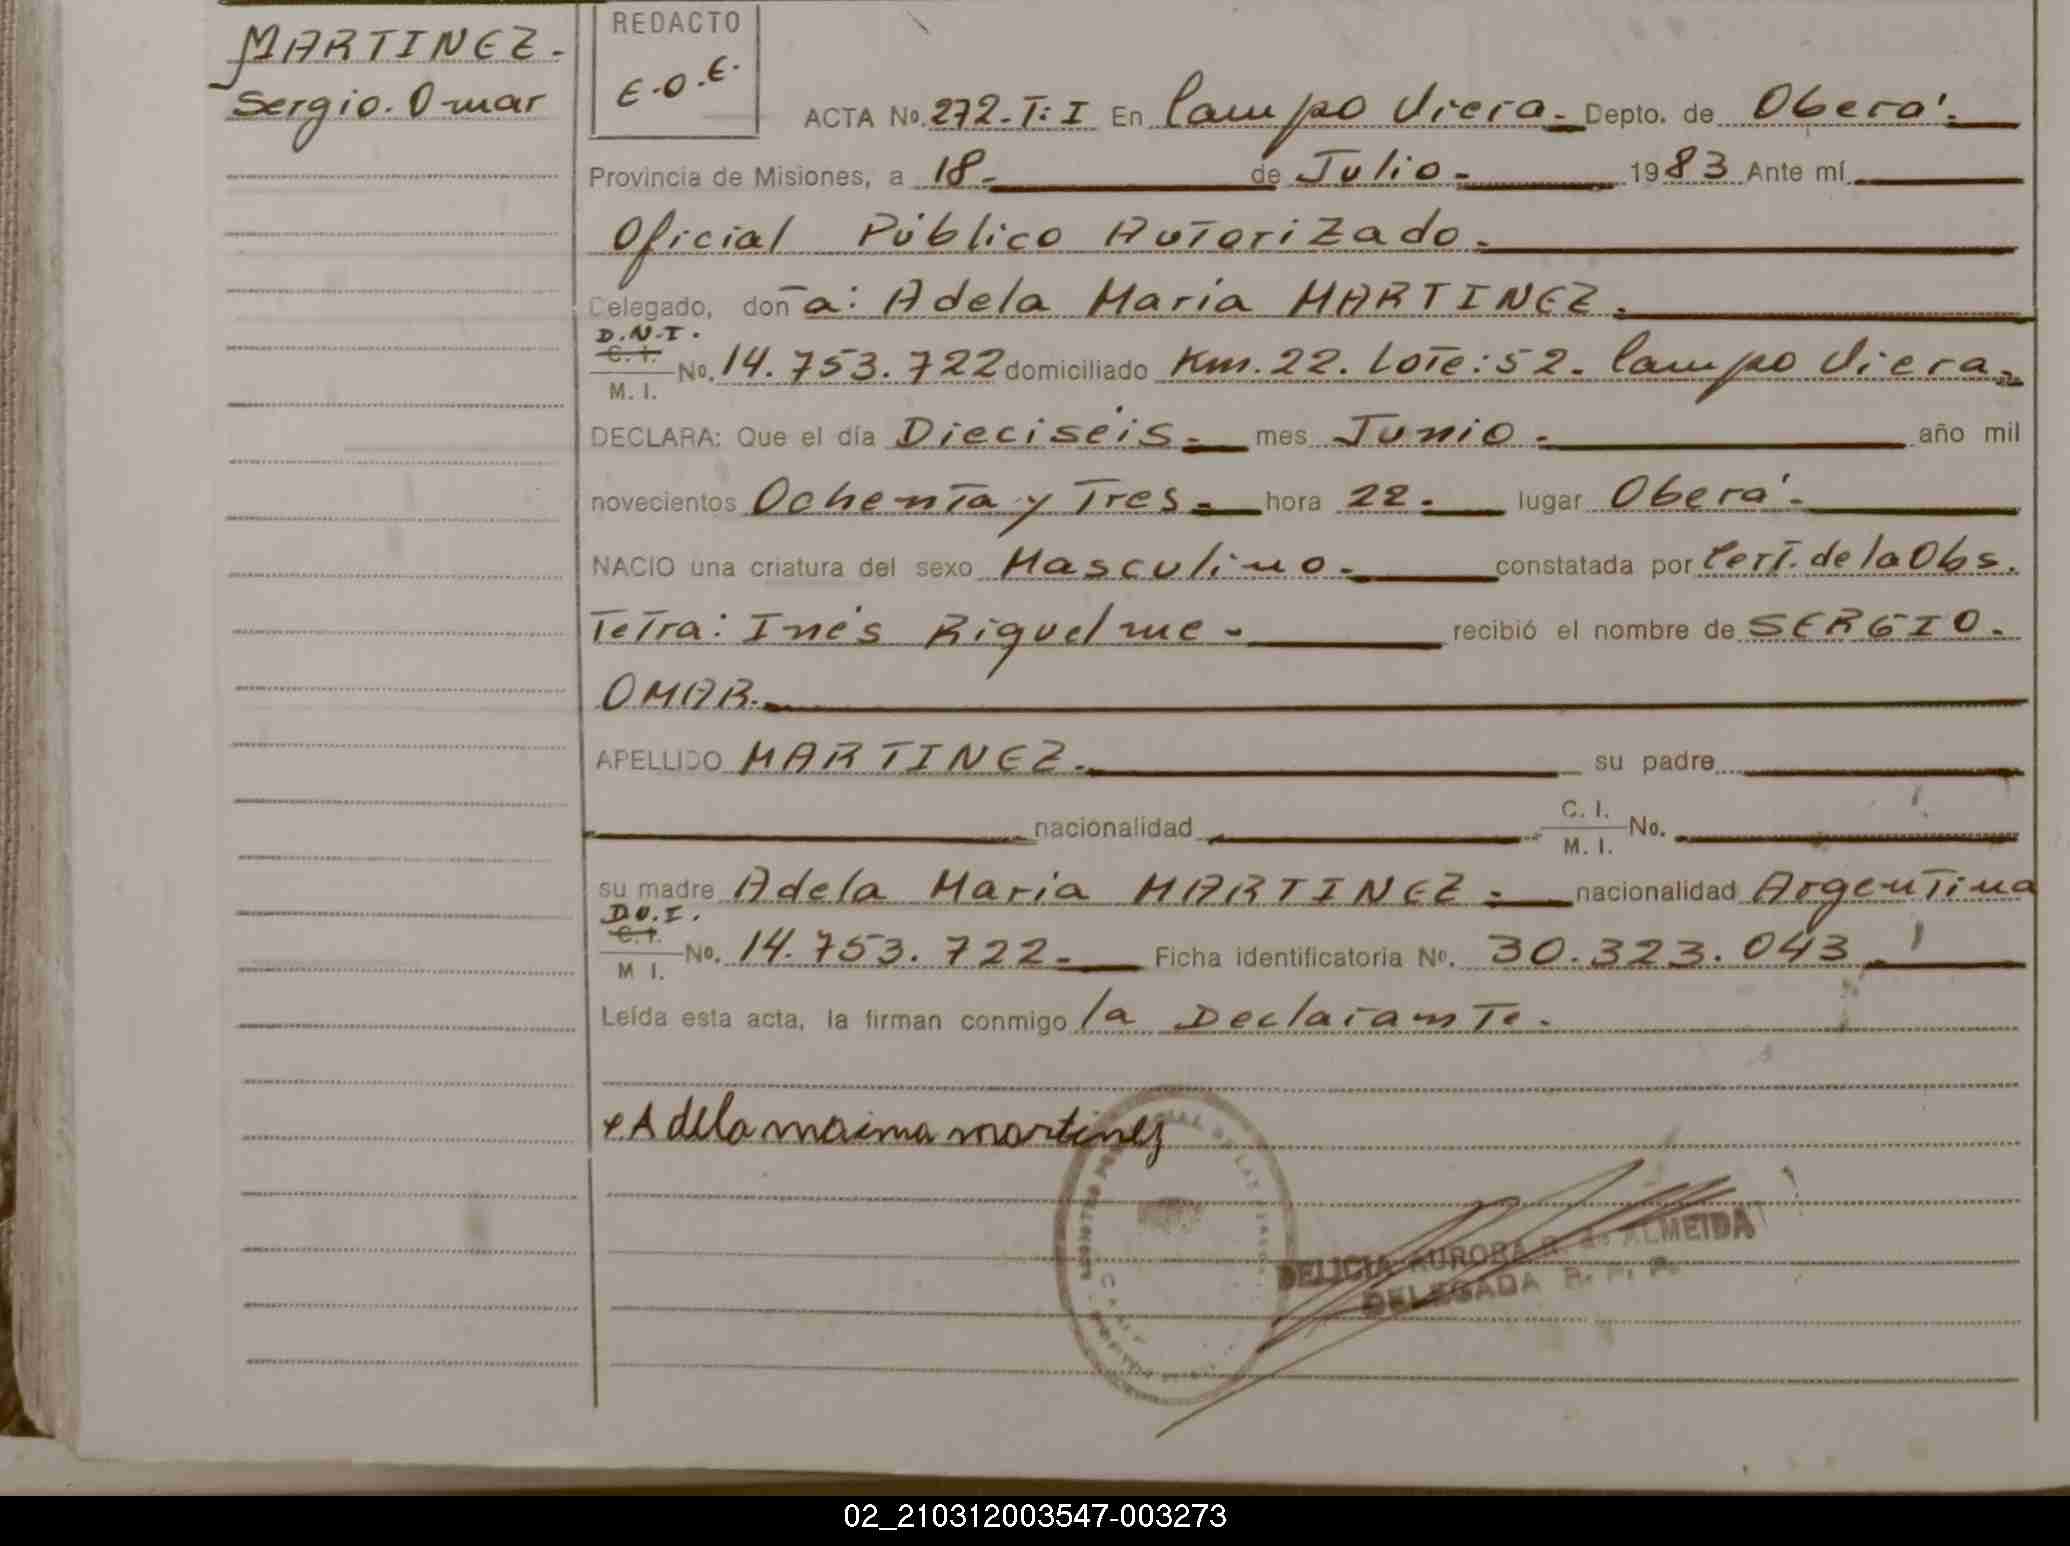 MARTINEZ.
Sergio. Omar
REDACTO
E.O.E.
ACTA No. 272. T: I En Campo Viera. Depto. de Oberá.
Provincia de Misiones, a 18. de Julio. 1983 Ante mí
Oficial Público Autorizado.
Delegado, don a: Adela Maria MARTINEZ.
D.N.I.
C. I.
M. I.
No. 14.753.722 domiciliado Km. 22. Lote: 52. Campo Viera.
DECLARA: Que el día Dieciséis. mes Junio. año mil
novecientos Ochenta y Tres. hora 22. lugar Oberá.
NACIO una criatura del sexo Masculino. constatada por Cert. de la Obs.
Tetra: Inés Riquelme. recibió el nombre de SERGIO.
OMAR.
APELLIDO MARTINEZ. su padre
nacionalidad C. I. No.
M. I.
su madre Adela Maria MARTINEZ. nacionalidad Argentina
D.N.I.
C. I.
M I.
No. 14.753.722. Ficha identificatoria No. 30.323.043
Leída esta acta, la firman conmigo la Declarante.
x Adela maima martinez
DELICIA AURORA R. de ALMEIDA
DELEGADA R. P. P.
02_210312003547-003273